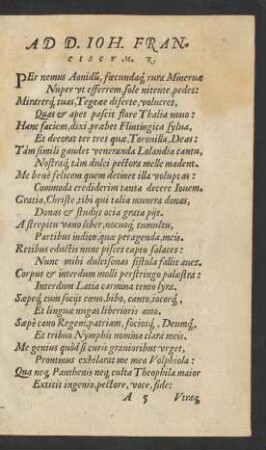 AD D. IOH. FRAN-
CISCVM. R.
PEr nemus Aonidũ, fœcundaq́; rura Mineruæ
Nuper vt efferrem, sole nitente, pedes:
Mirarerq́; tuas, Tegeæe diserte, volucres,
Quas & apes pascit flore Thalia nouo:
Hanc faciem, dixi, præbet Flintingica sylua,
Et decorat ter tres quæ, Torouilla, Deas:
Tàm simili gaudet veneranda Lolandia cantu,
Nostraq́; tàm dulci pectora melle madent.
Me benè felicem quem detinet illa voluptas:
Commoda crediderim tanta decere Iouem.
Gratia, Christe, tibi qui talia munera donas,
Donas & studijs ocia grata pijs.
A strepitu vano liber, nocuoq́; tumultu,
Partibus indico, quæ peragenda, meis.
Retibus eductis nunc pisces capto falaces:
Nunc mihi dulcisonas fistula fallit aues.
Corpus & interdum molli perstringo palæstra:
Interdum Latia carmina tento lyra.
Sæpeq́; cum socijs cœno, bibo, canto, iocorq́;,
Et linguæ nugas liberioris amo.
Sæpè cano Regem, patriam, sociosq́;, Deumq́;,
Et tribuo Nymphis nomina clara meis.
Me genius quòd si curis grauioribus vrget,
Protinus exhilarat me mea Volphiola:
Qua neq́; Panthenis neq́; culta Theophila maior
Extitit ingenio, pectore, voce, fide:
A 5 Vtraq́;